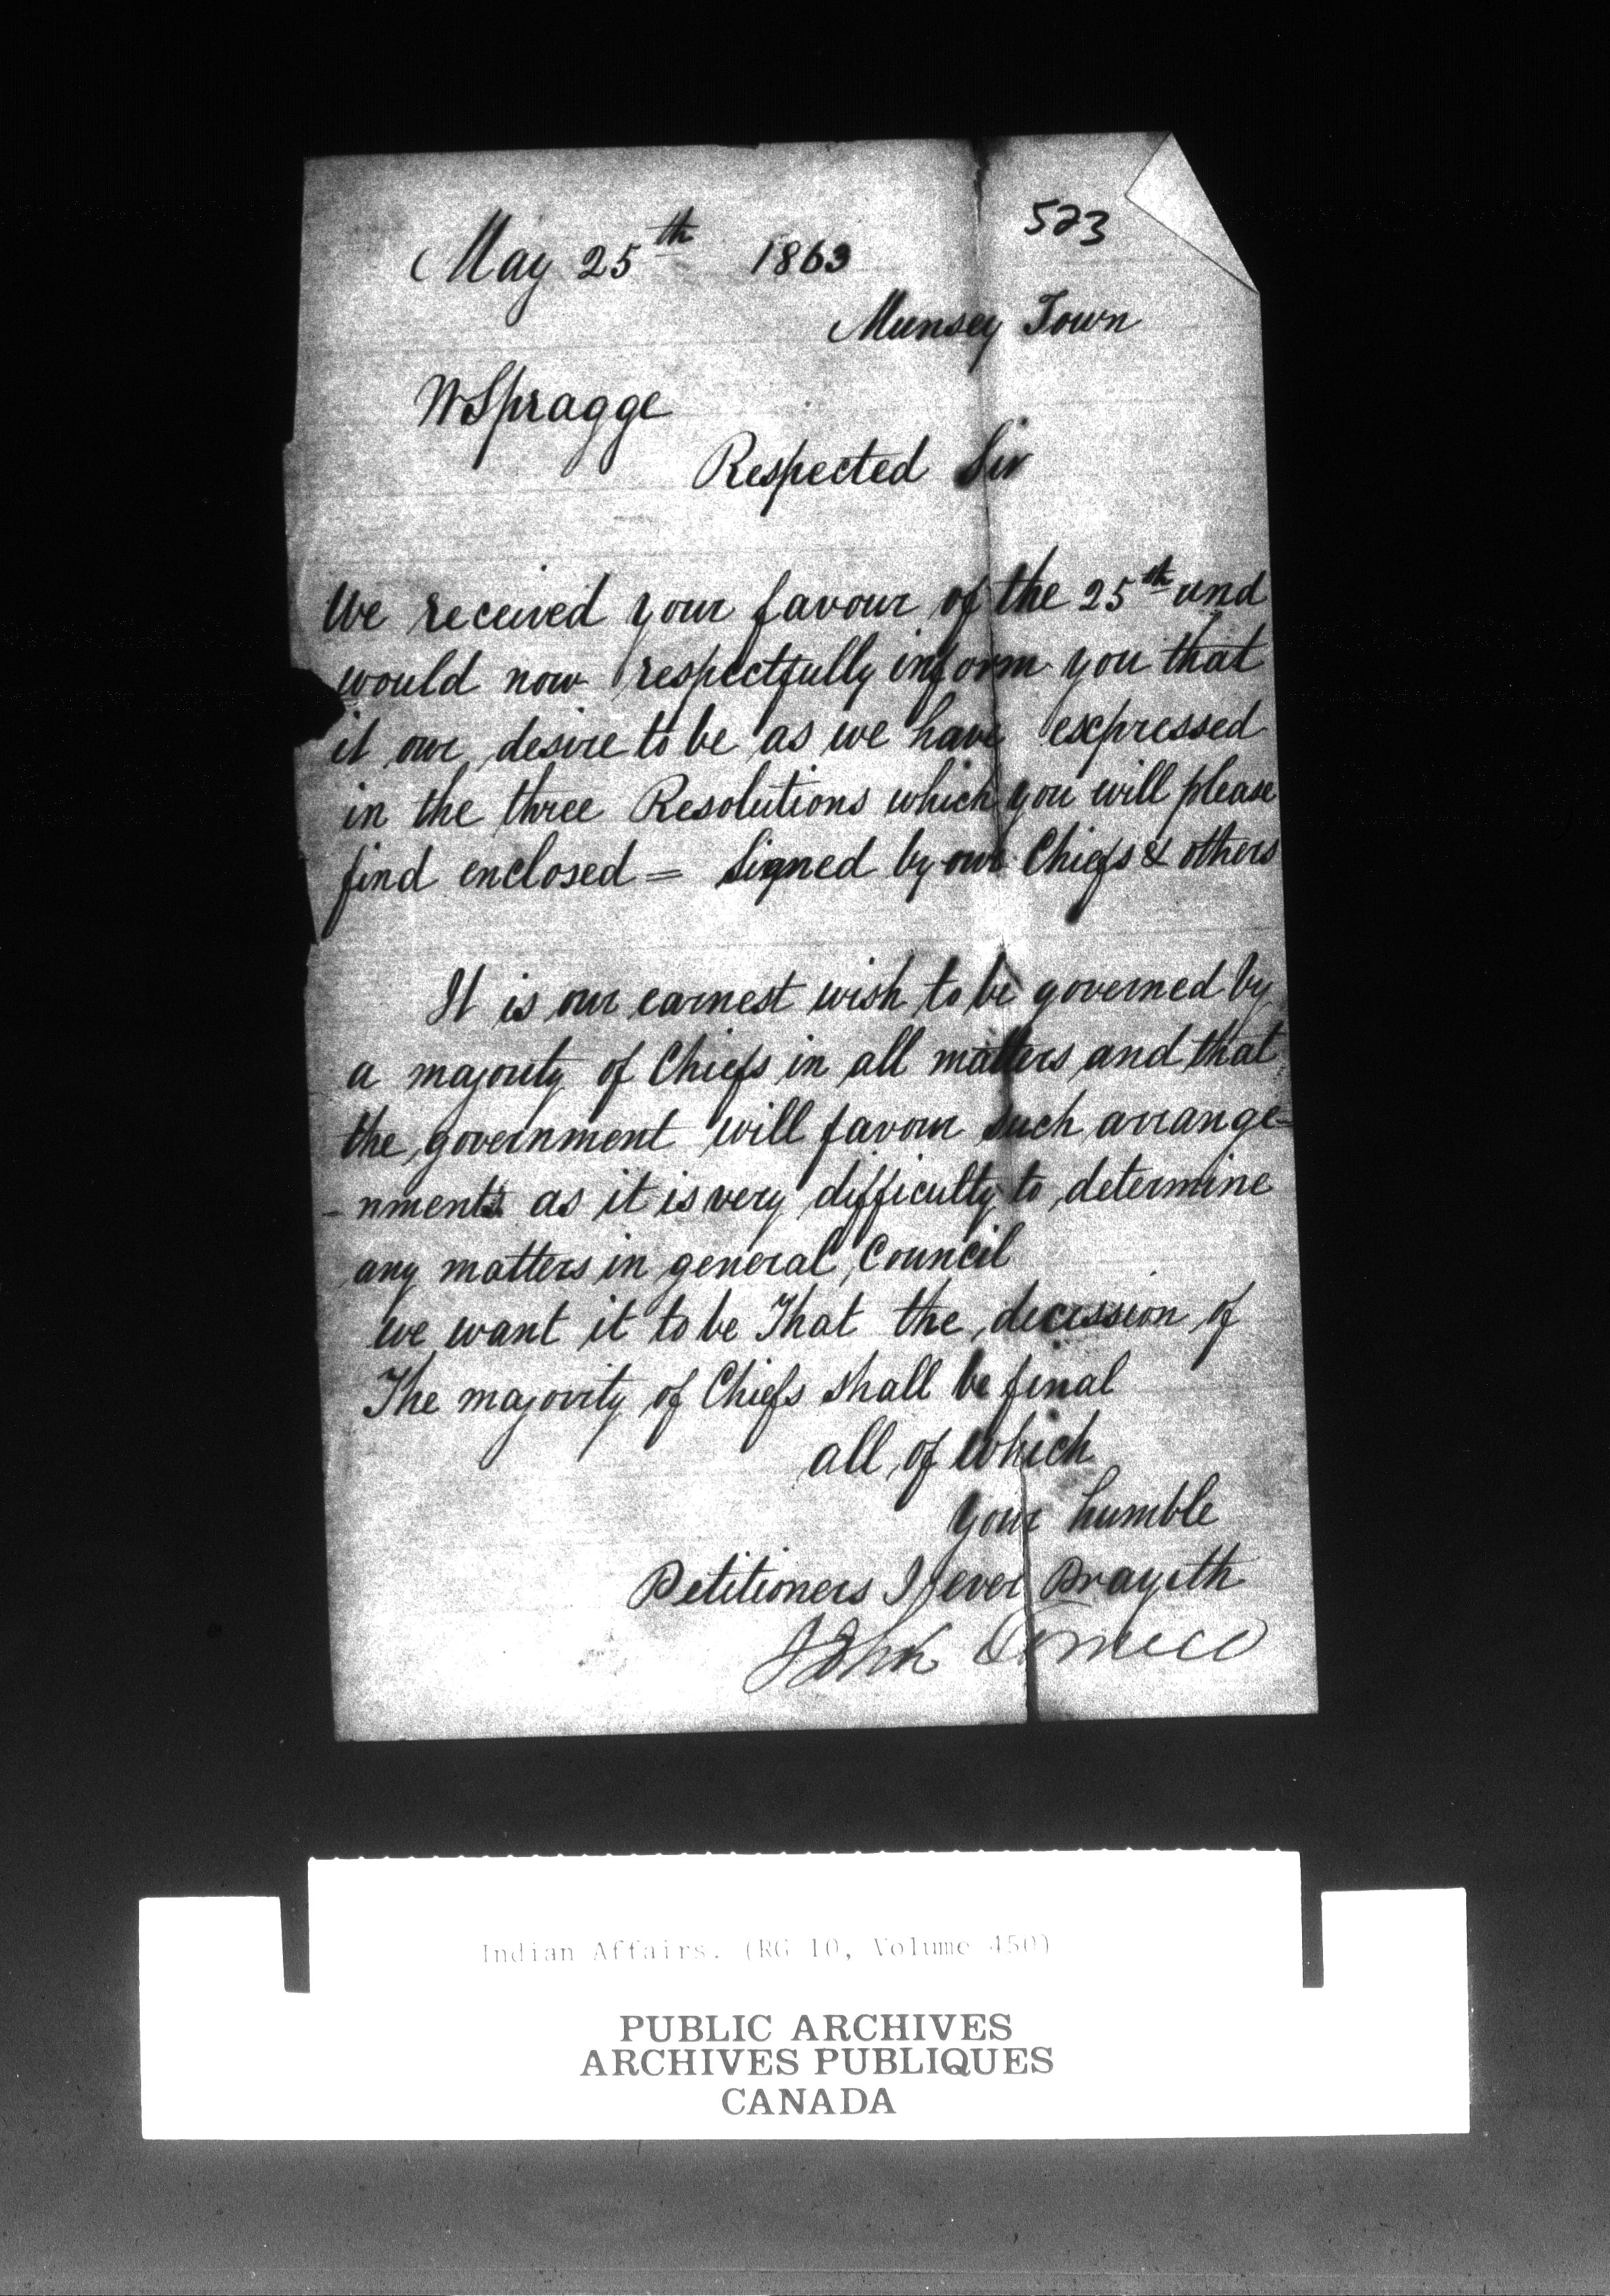 523
May 25th 1863
Munsey Town
W Spragge
Respected Sir
We received your favour of the 25th und
would now respectfully inform you that
it our desire to be as we have expressed
in the three Resolutions which you will please
find enclosed = Signed by our Chiefs & others
It is our earnest wish to be governed by
a majority of Chiefs in all matters and that
the government will favour such arrange-
-nments as it is very difficulty to determine
any matters in general Council
we want it to be That the, decission of
The majority of Chiefs shall be final
all of which
your humble
Petitioners I ever Prayeth
John
Indian Affairs. (RG 10, Volume 450)
PUBLIC ARCHIVES
ARCHIVES PUBLIQUES
CANADA